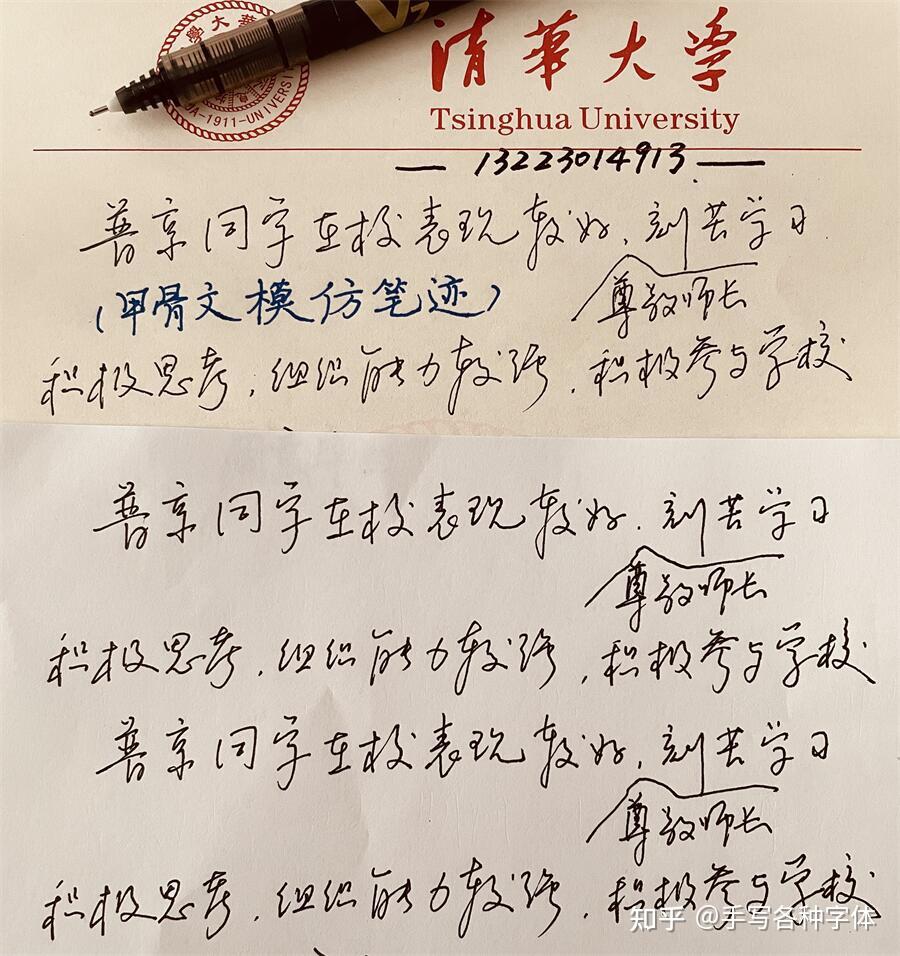 學大華
-1911-UNIVERSI
V7
清華大学
Tsinghua University
— 13223014913 —
普京同学在校表现较好，刻苦学习
尊敬师长
（甲骨文模仿笔迹）
积极思考，组织能力较强，积极参与学校
普京同学在校表现较好，刻苦学习
尊敬师长
积极思考，组织能力较强，积极参与学校
普京同学在校表现较好，刻苦学习
尊敬师长
积极思考，组织能力较强，积极参与学校
知乎 @手写各种字体